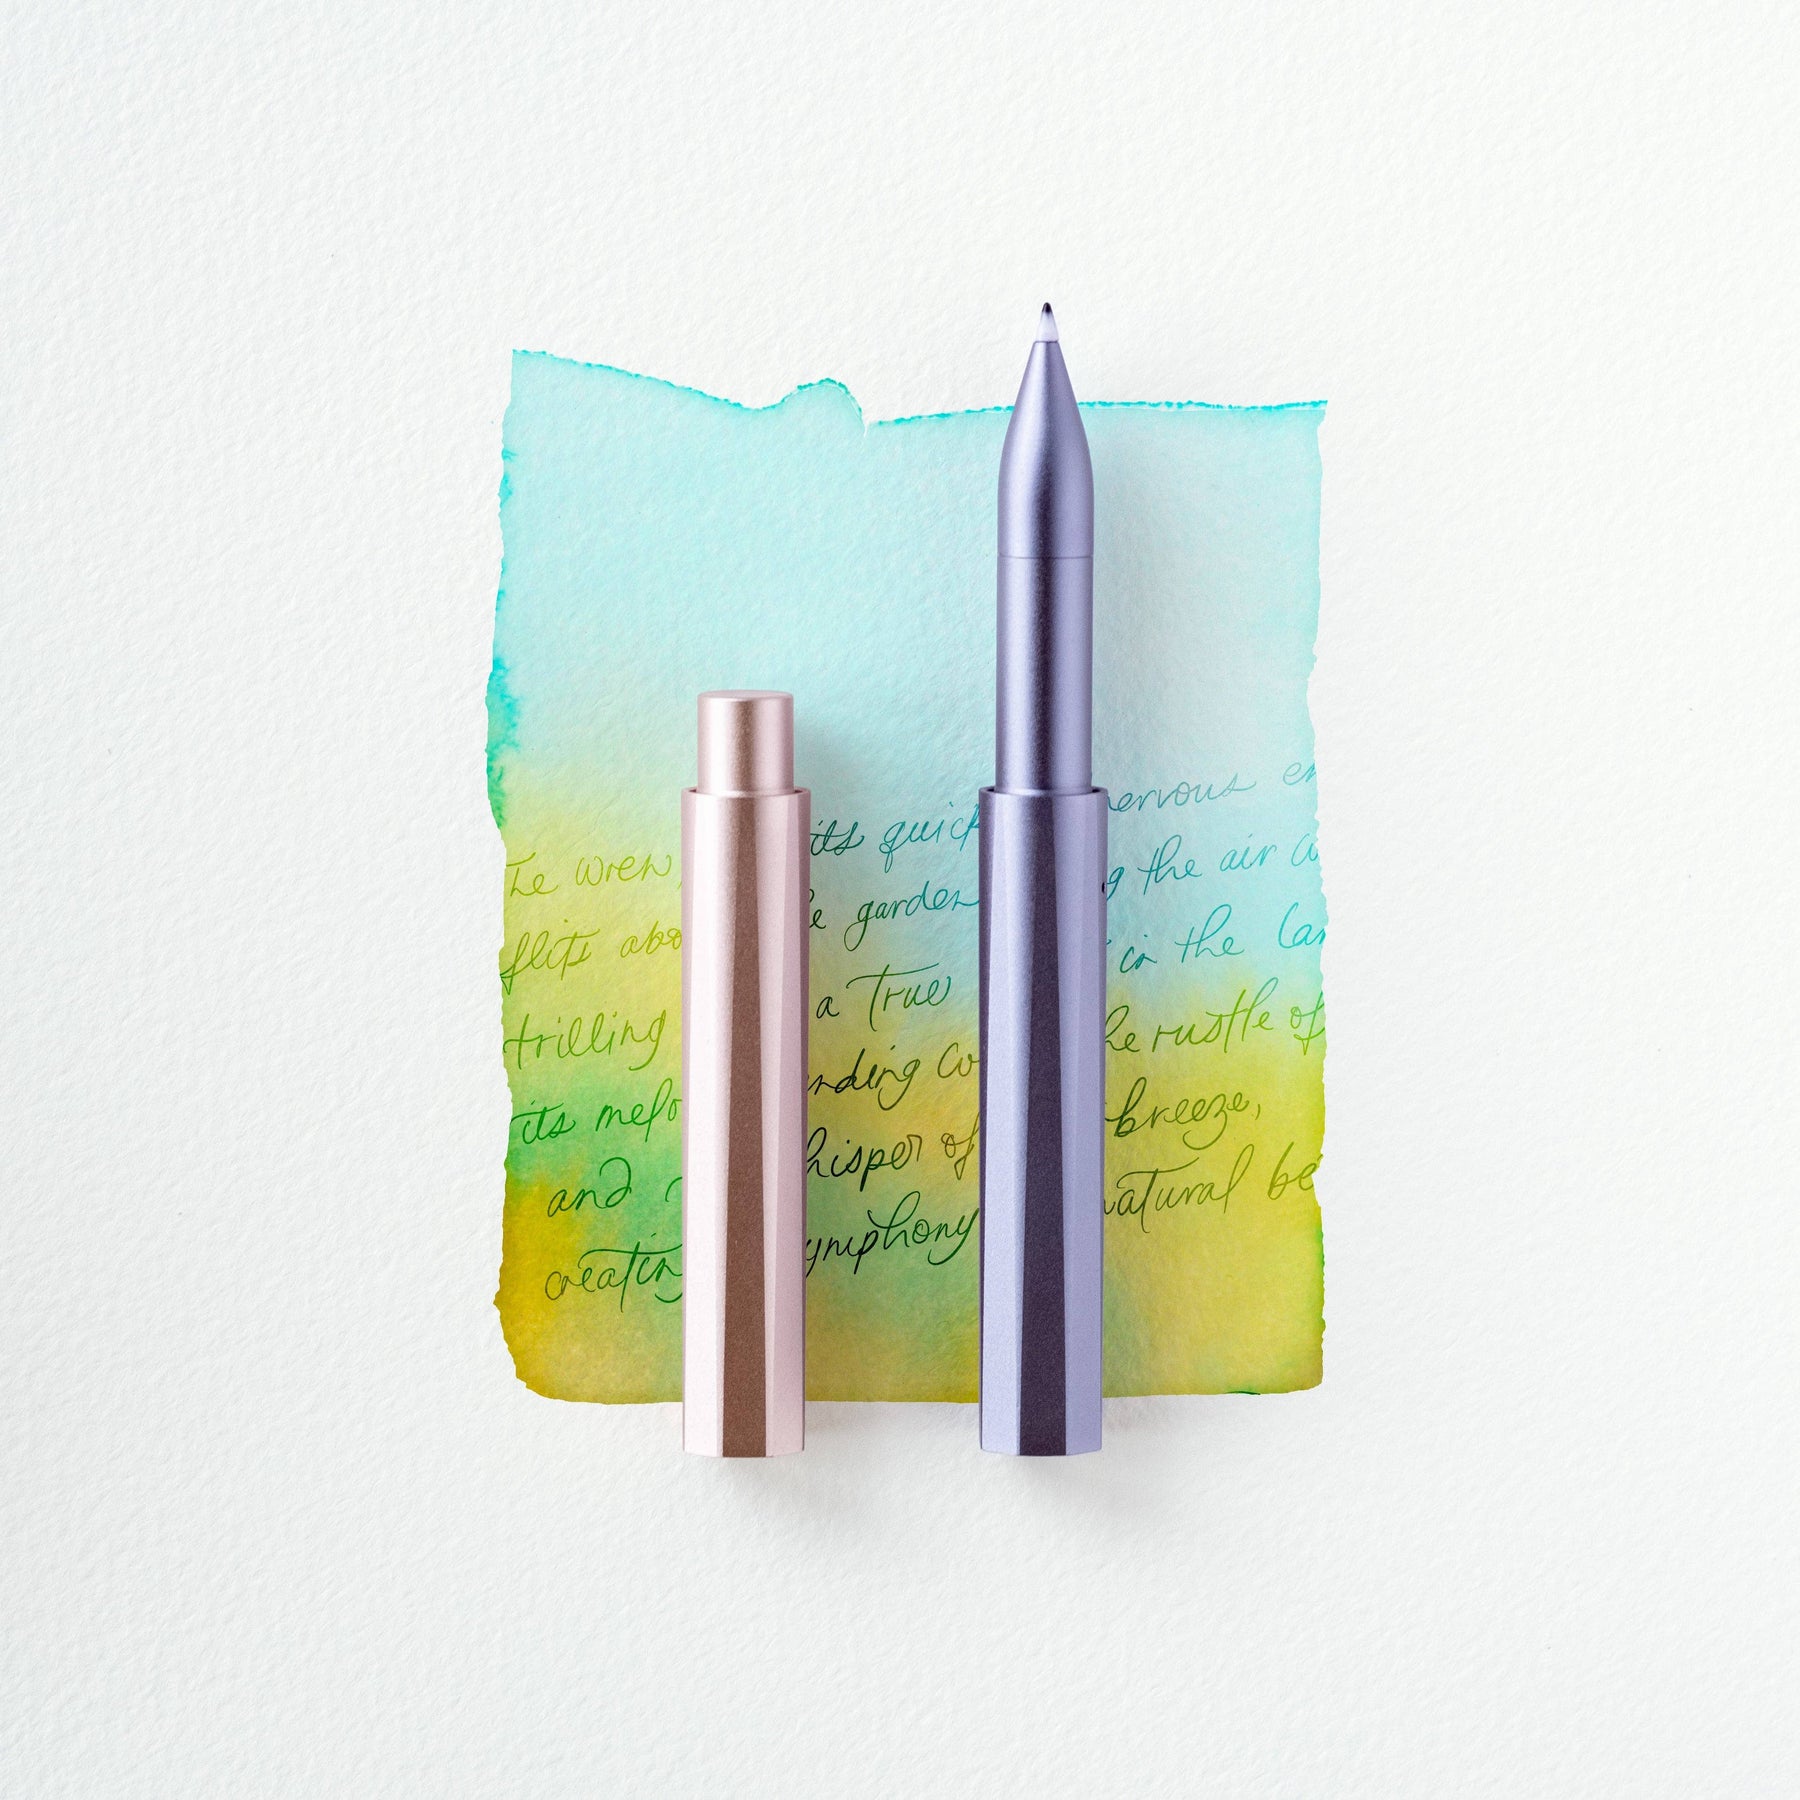 The wren, its quick nervous en
flits abo he garden g the air
trilling a true in the lan
its melo nding co he rustle of
and hisper of breeze,
creatin ymphony natural be